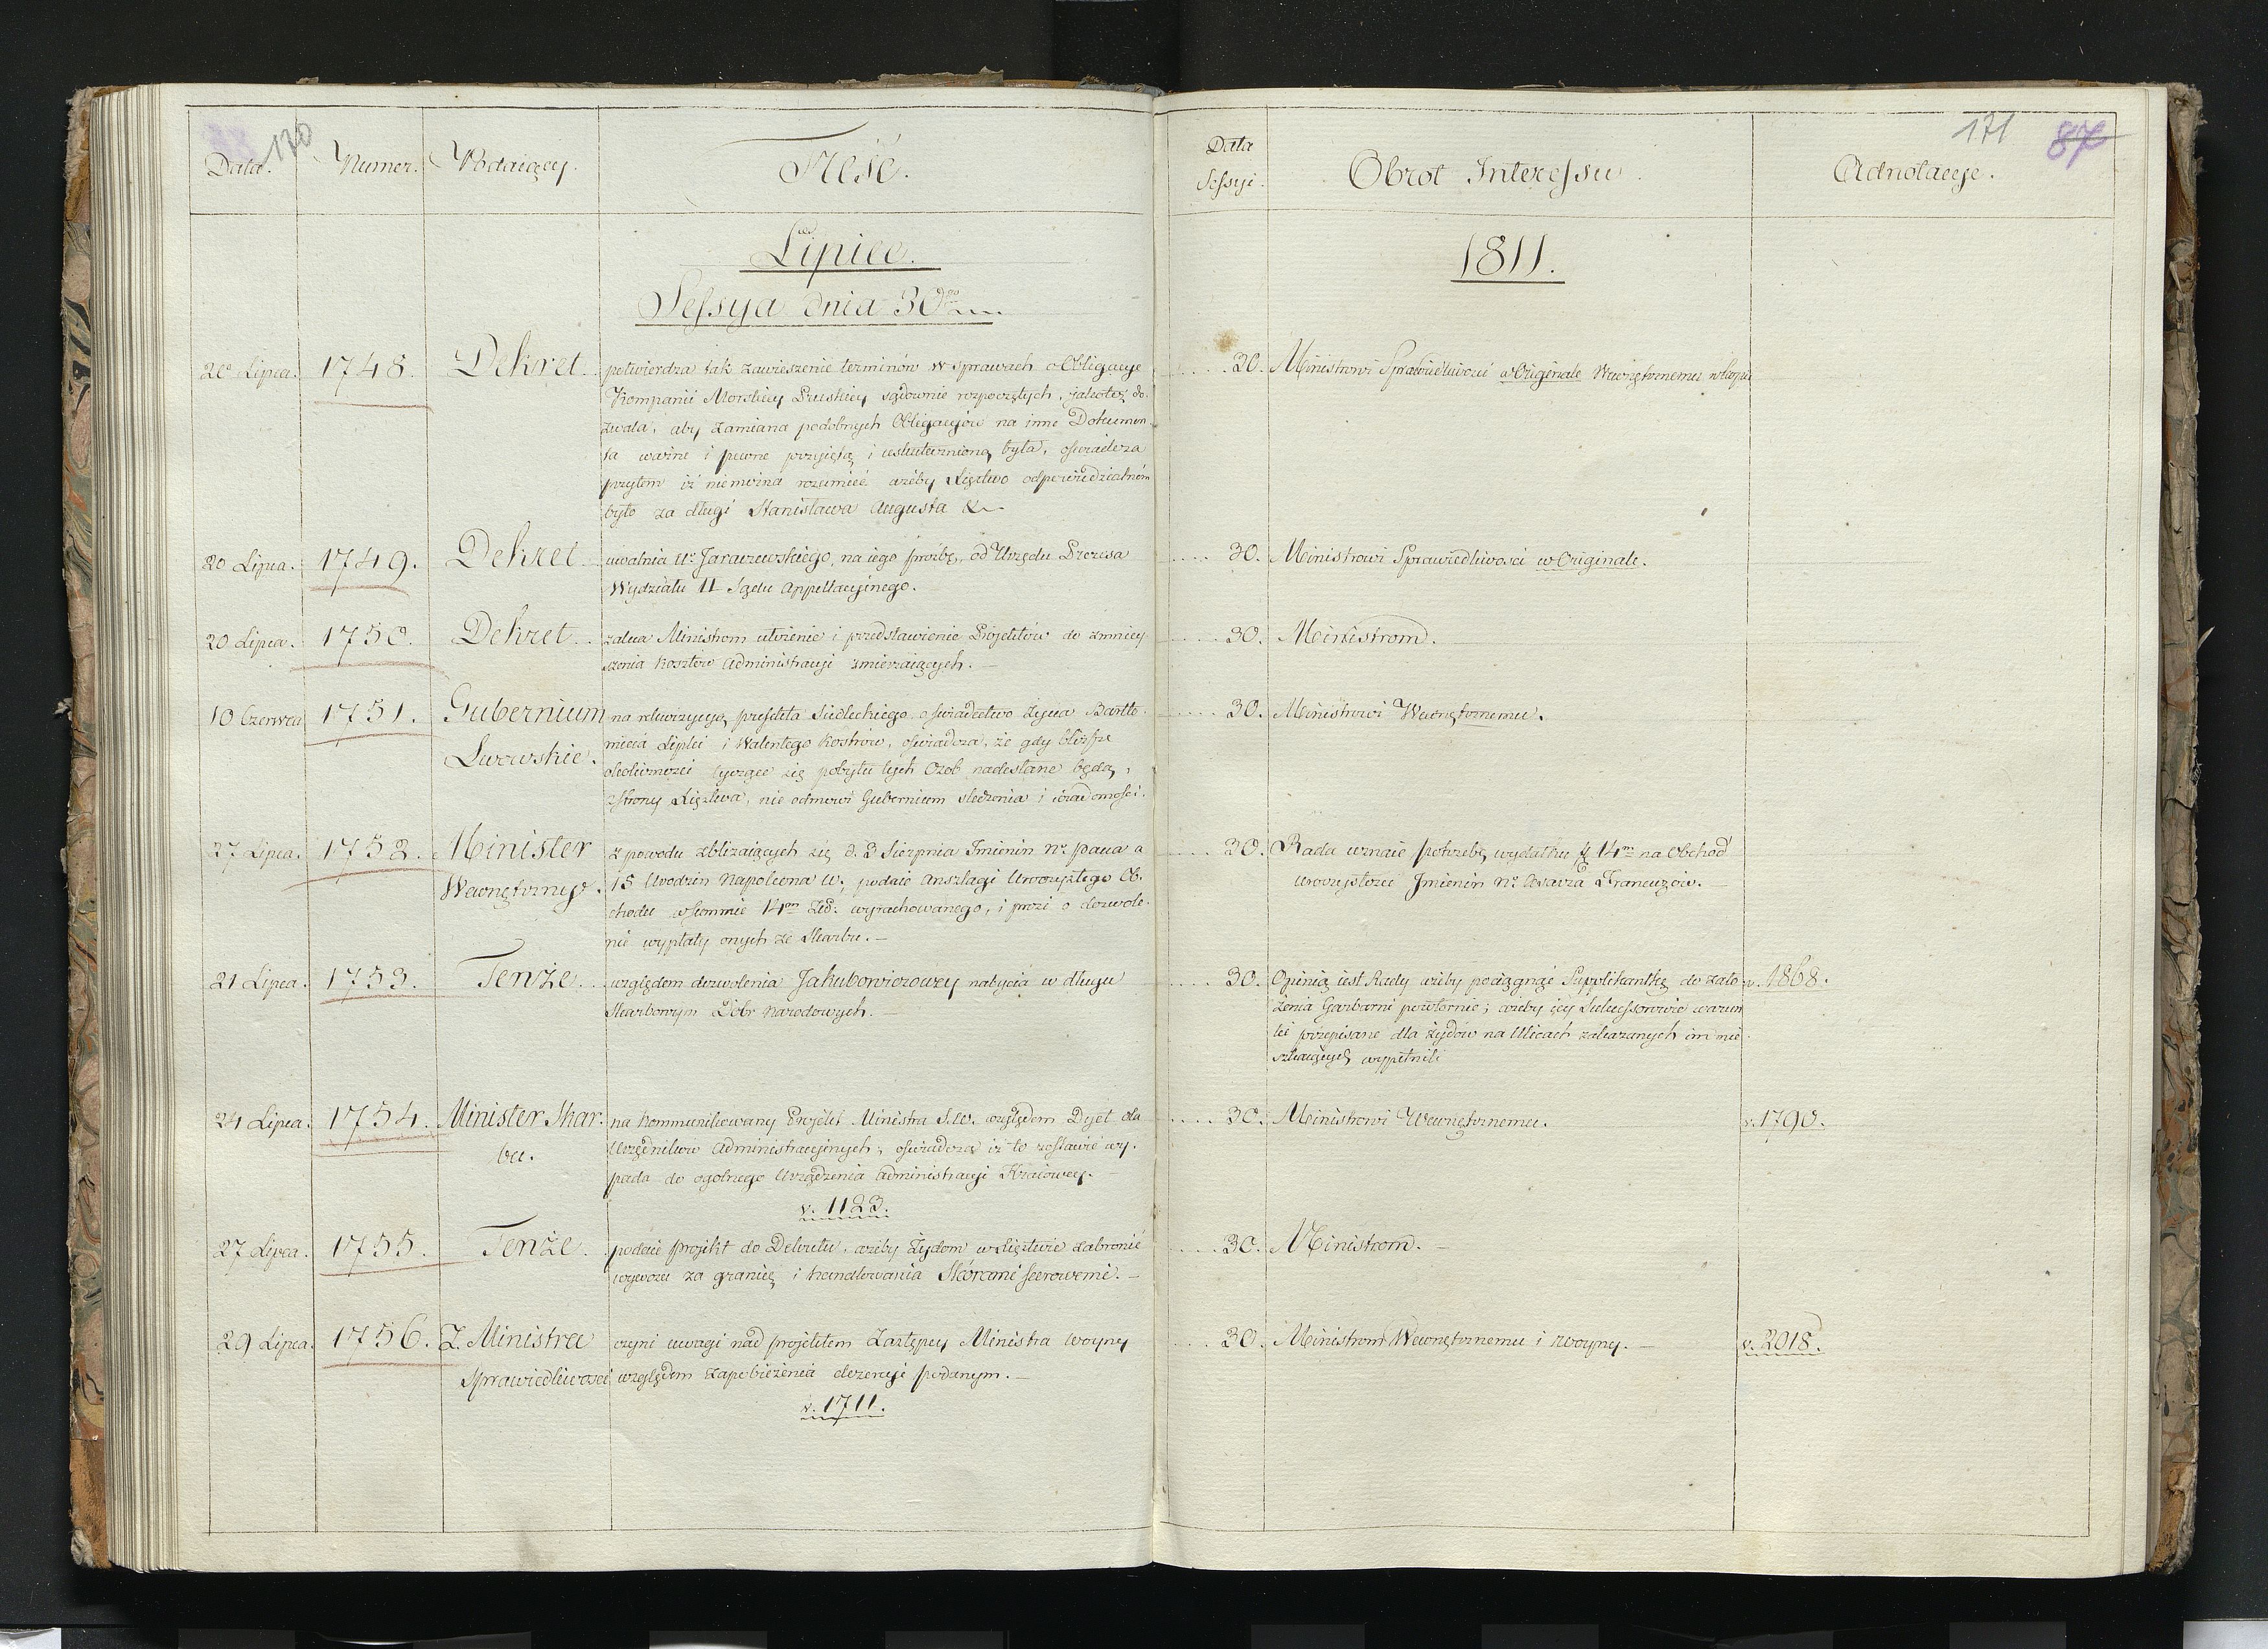 170
Data. Numer. Podaiący. Treść.
Lipiec.
Sessya dnia 30go
20 Lipca. 1748. Dekret potwierdza tak zawieszenie terminów w sprawach o Obligacye
Kompanii Morskiey Pruskiey sądownie rozpoczętych, jakoteż do-
zwala, aby zamiana podobnych Obligacyów na inne Dokumen-
ta ważne i pewne przyięta i uskutecznioną była, oświadcza
przytem iż nie można rozumieć ażeby Xięstwo odpowiedzialnem
było za długi Stanisława Augusta &c
20 Lipca. 1749. Dekret uwalnia Ur. Jaraczewskiego, na iego prożbę, od Urzędu Prezesa
Wydziału II Sądu Appellacyinego.
20 Lipca. 1750. Dekret zaleca Ministrom ułożenie i przedstawienie Projektów do zmniey-
szenia Kosztów Administracyi zmierzaiących.—
10 Czerwca 1751. Gubernium na rekwizycyą prefekta Siedleckiego o świadectwo życia Bartło-
mieia Lipki i Walentego Kostrów, oświadcza, że gdy bliższe
Lwowskie. okoliczności tyczące się pobytu tych Osob nadesłane będą,
z strony Xięstwa, nie odmówi Gubernium śledzenia i wiadomości.
27 Lipca. 1752. Minister z powodu zbliżaiących się d. 3 Sierpnia Imienin No Pana a
Wewnętrzny. 15 Urodzin Napoleona W., podaie Anszlagi Uroczystego Ob-
chodu w summie 14m Zł: wyrachowanego, i prosi o dozwole-
nie wypłaty onych ze Skarbu.—
21 Lipca. 1753. Tenże względem dozwolenia Jakubowiczowey nabycia w długu
Skarbowym Dóbr Narodowych.—
24 Lipca. 1754. Minister Skar- na kommunikowany Projekt Ministra S.W. względem Dyet dla
bu. Urzędników Administracyinych, oświadcza iż to zostawić wy-
pada do ogolnego Urządzenia Administracyi Kraiowey.—
v. 1123.
27 Lipca. 1755. Tenże podaie projekt do Dekretu, ażeby Żydom w Xięstwie zabronić
wywozu za granicę i handlowania Skórami surowemi.—
29 Lipca. 1756. Z. Ministra czyni uwagi nad projektem Zastępcy Ministra Woyny
Sprawiedliwości względem zapobieżenia dezercyi podanym.—
v. 1711.
171 87
Data
Sessyi. Obrot Interessu. Adnotacye.
1811.
30. Ministrowi Sprawiedliwości w Originale Wewnętrznemu w kopii
30. Ministrowi Sprawiedliwości w Originale.
30. Ministrom.
30. Ministrowi Wewnętrznemu.
30. Rada uznaie potrzebę wydatku zł 14m na Obchod
uroczystości Imienin No Cesarza Francuzów.—
30. Opinią iest Rady ażeby pociągnąć Supplikantkę do zało- v. 1868.
żenia Garbarni powtornie; ażeby iey Sukcessorowie warun-
ki przepisane dla żydów na Ulicach zakazanych im mie-
szkaiących wypełnili
30. Ministrowi Wewnętrznemu. v. 1790.
30. Ministrom.—
30. Ministrom Wewnętrznemu i Woyny.— v. 2018.